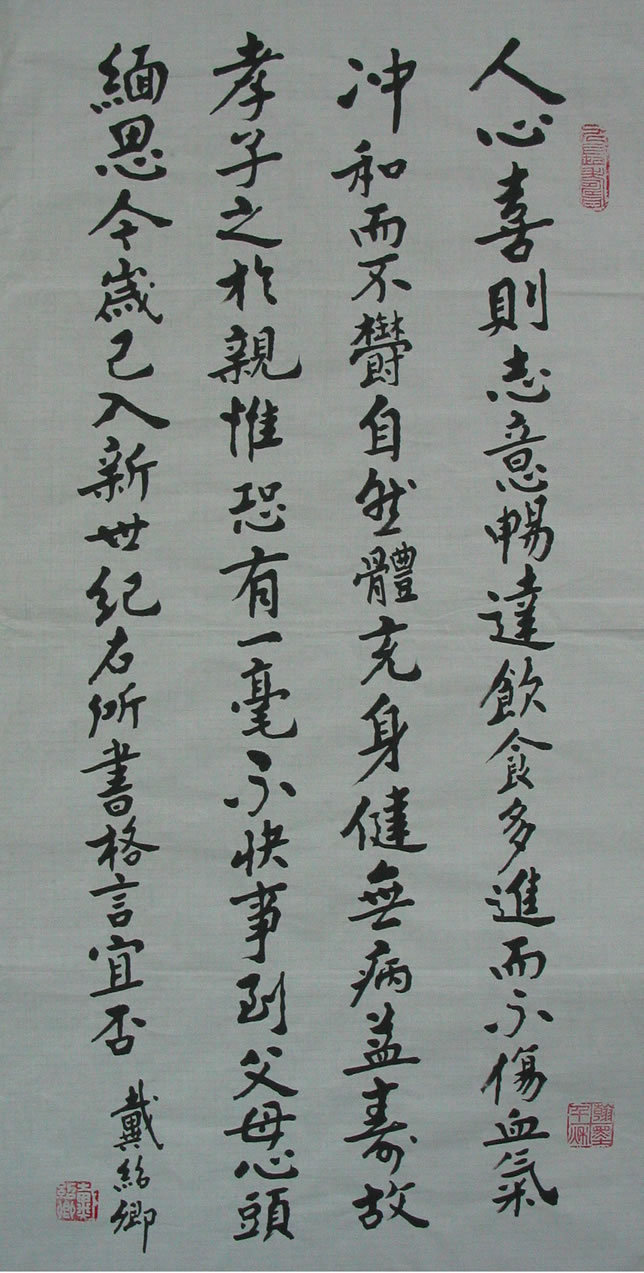 人心喜則志意暢達飲食多進而不傷血氣
冲和而不欝自然體充身健無病益壽故
孝子之於親惟恐有一毫不快事到父母心頭
緬思今歲已入新世紀右所書格言宜否
戴紹卿
翰墨
戴紹卿